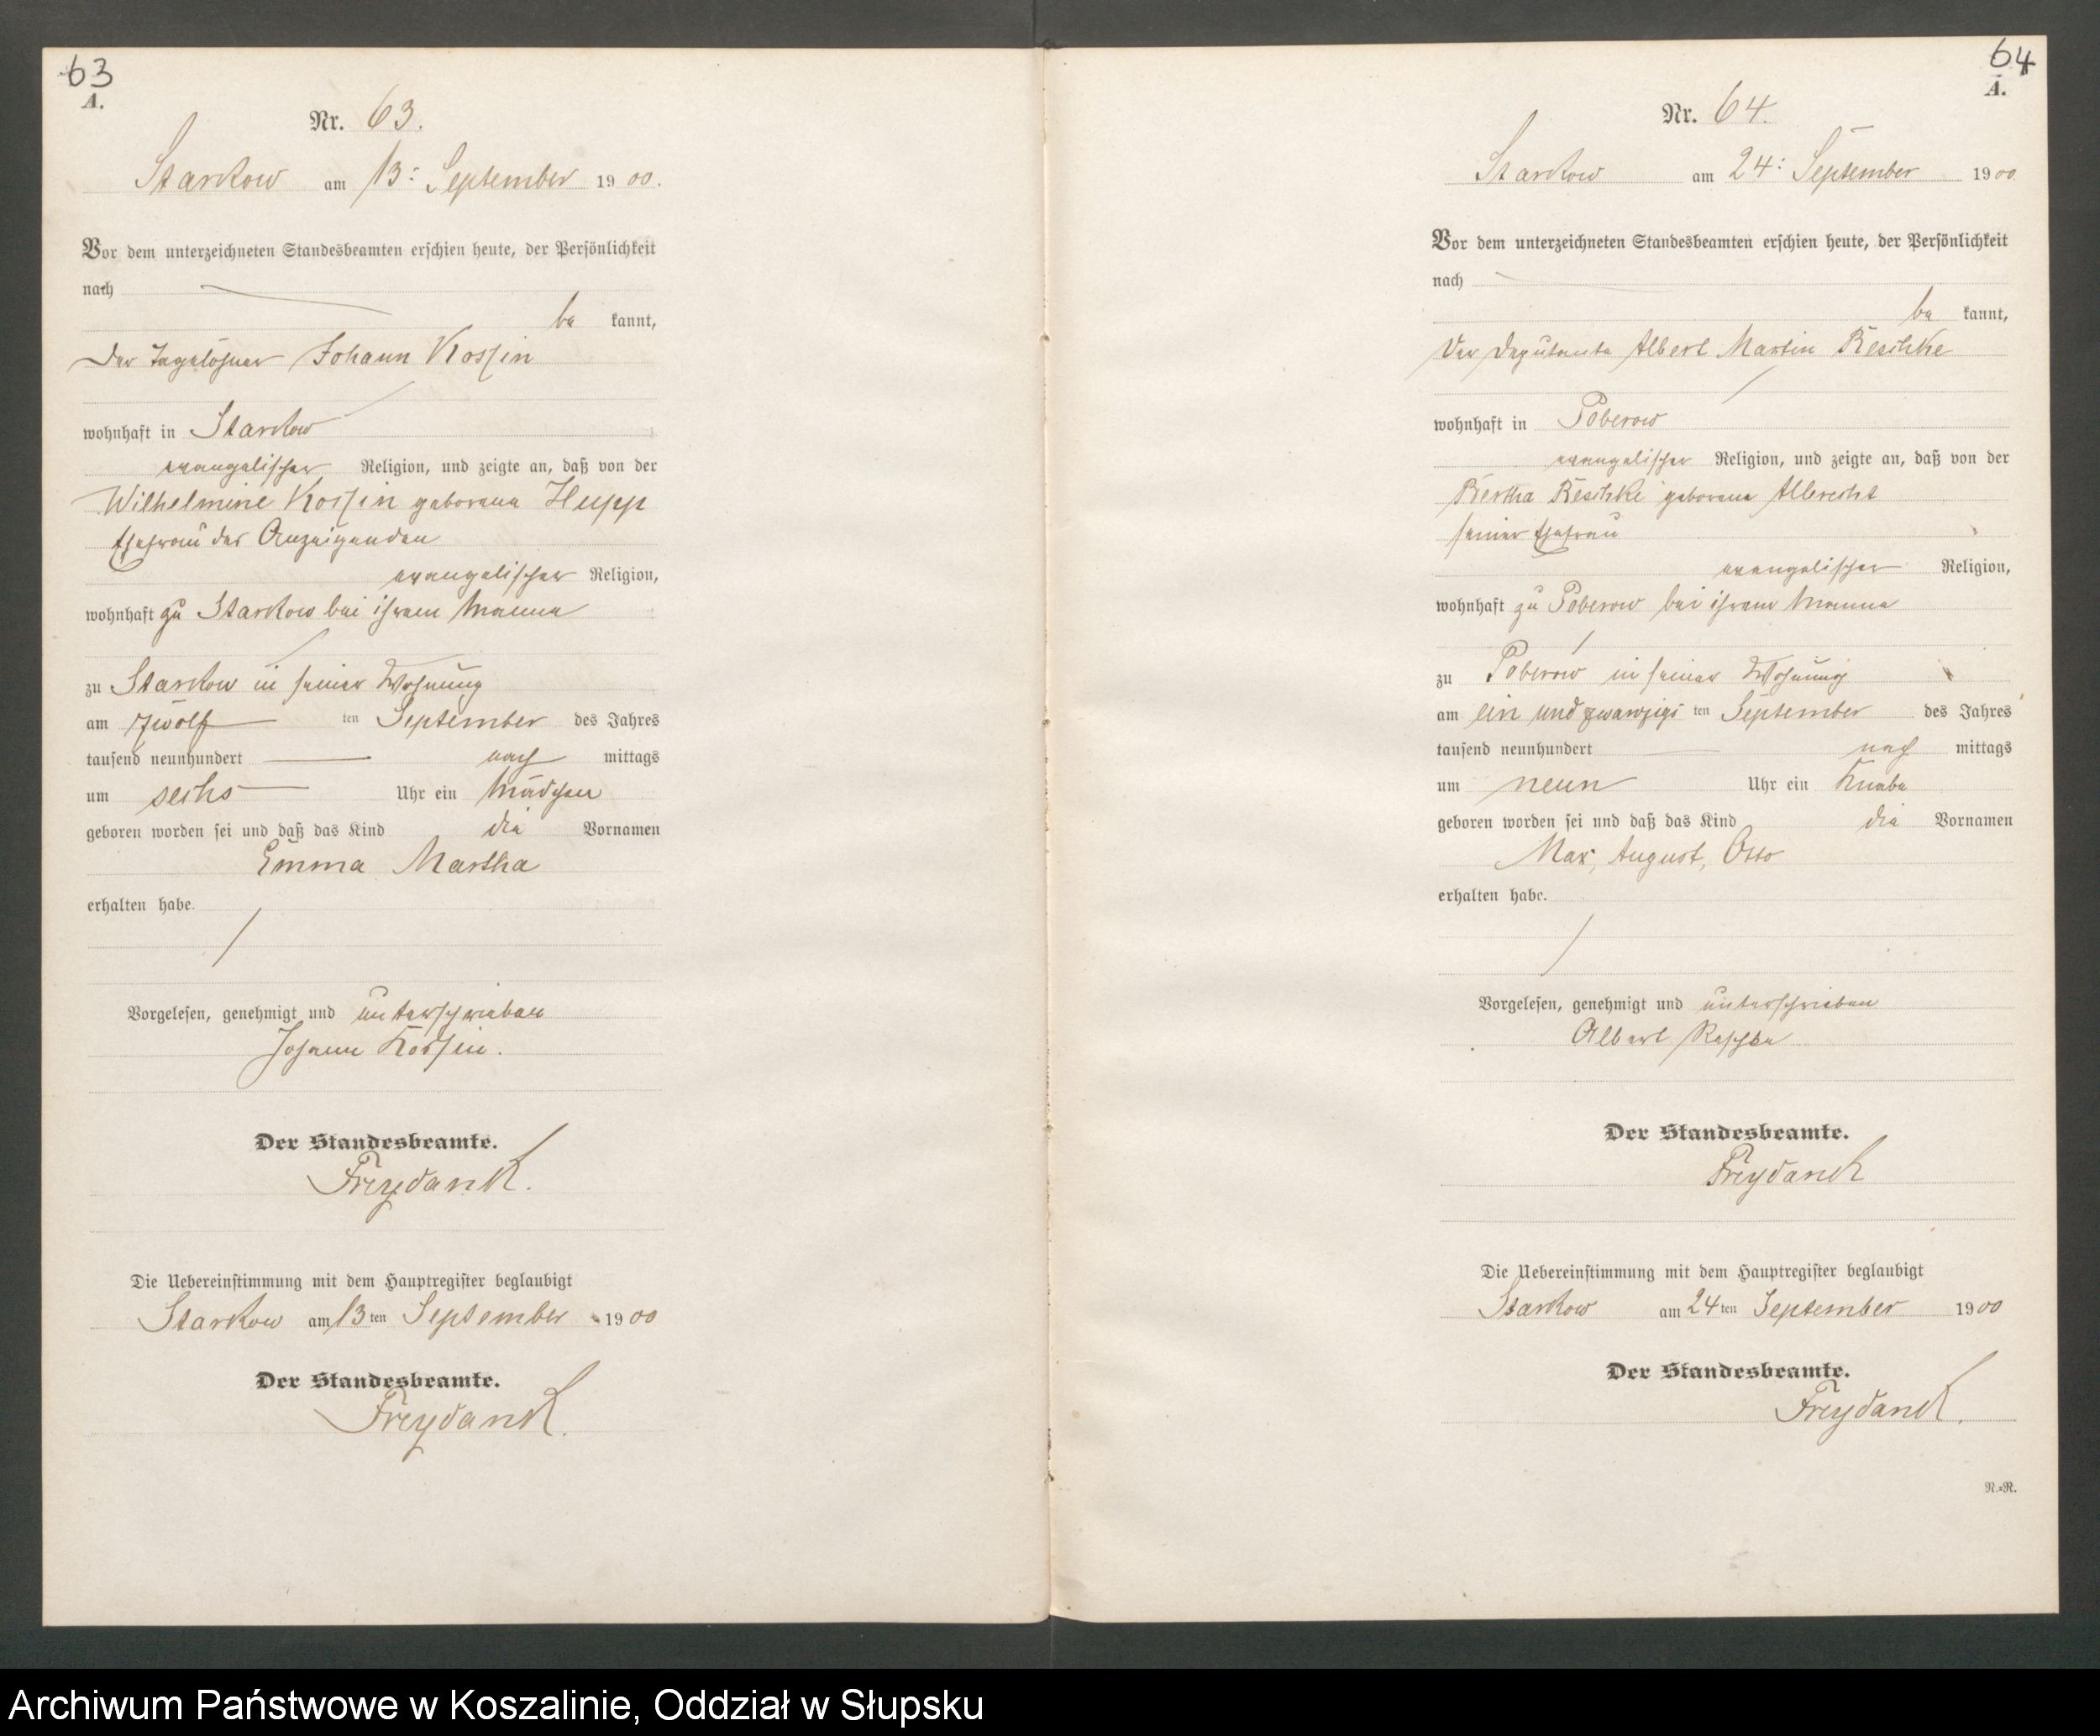 63
A.
Nr. 63.
Starkow am 13: September 1900.
Vor dem unterzeichneten Standesbeamten erschien heute, der Persönlichkeit
nach
be kannt,
der Tagelöhner Johann Kossin
wohnhaft in Starkow
evangelischer Religion, und zeigte an, daß von der
Wilhelmine Kossin geborene Hupp
Ehefrau des Anzeigenden
evangelischer Religion,
wohnhaft zu Starkow bei ihrem Manne
zu Starkow in seiner Wohnung
am zwölf ten September des Jahres
tausend neunhundert nach mittags
um sechs Uhr ein Mädchen
geboren worden sei und daß das Kind die Vornamen
Emma Martha
erhalten habe.
Vorgelesen, genehmigt und unterschrieben
Johann Kossin.
Der Standesbeamte.
Freydank.
Die Uebereinstimmung mit dem Hauptregister beglaubigt
Starkow am 13ten September 1900
Der Standesbeamte.
Freydank.
64
A.
Nr. 64.
Starkow am 24: September 1900
Vor dem unterzeichneten Standesbeamten erschien heute, der Persönlichkeit
nach
be kannt,
der Deputante Albert Martin Reschke
wohnhaft in Poberow
evangelischer Religion, und zeigte an, daß von der
Bertha Reschke geborene Albrecht
seiner Ehefrau
evangelischer Religion,
wohnhaft zu Poberow bei ihrem Manne
zu Poberow in seiner Wohnung
am ein und zwanzigs ten September des Jahres
tausend neunhundert nach mittags
um neun Uhr ein Knabe
geboren worden sei und daß das Kind die Vornamen
Max, August, Otto
erhalten habe.
Vorgelesen, genehmigt und unterschrieben
Albert Reschke
Der Standesbeamte.
Freydank
Die Uebereinstimmung mit dem Hauptregister beglaubigt
Starkow am 24ten September 1900
Der Standesbeamte.
Freydank.
R.=R.
Archiwum Państwowe w Koszalinie, Oddział w Słupsku